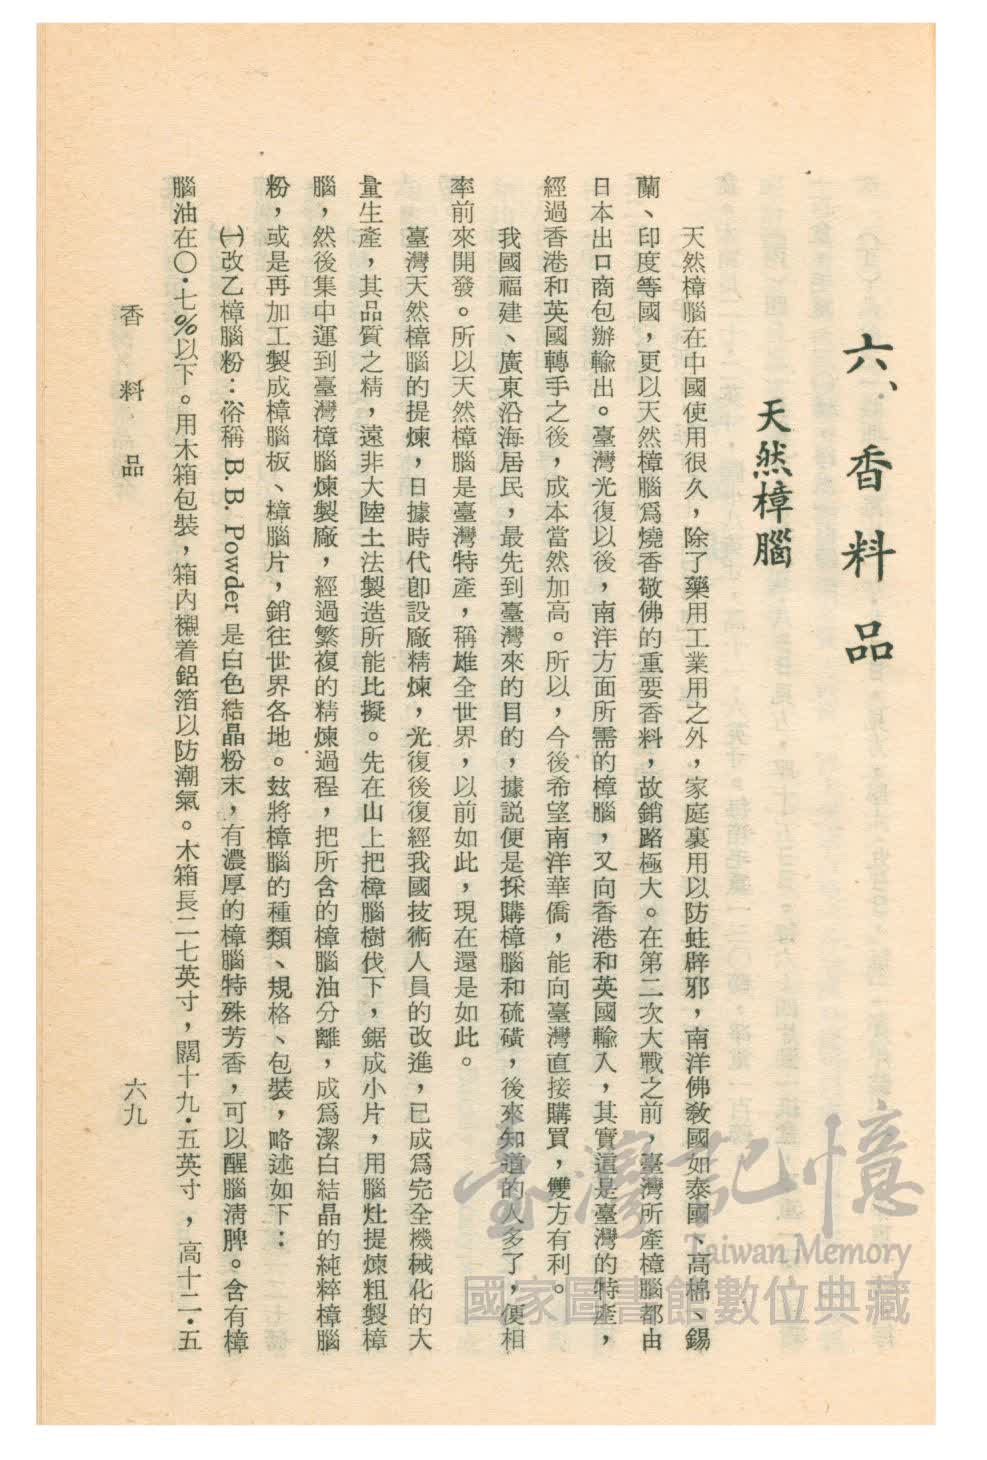 六、香料品
天然樟腦
天然樟腦在中國使用很久，除了藥用工業用之外，家庭裏用以防蛀辟邪，南洋佛敎國如泰國、高棉、錫
蘭、印度等國，更以天然樟腦爲燒香敬佛的重要香料，故銷路極大。在第二次大戰之前，臺灣所產樟腦都由
日本出口商包辦輸出。臺灣光復以後，南洋方面所需的樟腦，又向香港和英國輸入，其實這是臺灣的特產，
經過香港和英國轉手之後，成本當然加高。所以，今後希望南洋華僑，能向臺灣直接購買，雙方有利。
我國福建、廣東沿海居民，最先到臺灣來的目的，據說便是採購樟腦和硫磺，後來知道的人多了，便相
率前來開發。所以天然樟腦是臺灣特產，稱雄全世界，以前如此，現在還是如此。
臺灣天然樟腦的提煉，日據時代卽設廠精煉，光復後復經我國技術人員的改進，已成爲完全機械化的大
量生產，其品質之精，遠非大陸土法製造所能比擬。先在山上把樟腦樹伐下，鋸成小片，用腦灶提煉粗製樟
腦，然後集中運到臺灣樟腦煉製廠，經過繁複的精煉過程，把所含的樟腦油分離，成爲潔白結晶的純粹樟腦
粉，或是再加工製成樟腦板、樟腦片，銷往世界各地。玆將樟腦的種類、規格、包裝，略述如下：
㈠改乙樟腦粉：俗稱 B. B. Powder 是白色結晶粉末，有濃厚的樟腦特殊芳香，可以醒腦淸脾。含有樟
腦油在〇・七%以下。用木箱包裝，箱內襯着鋁箔以防潮氣。木箱長二七英寸，闊十九・五英寸，高十二・五
香料品
六九
臺灣記憶
Taiwan Memory
國家圖書館數位典藏